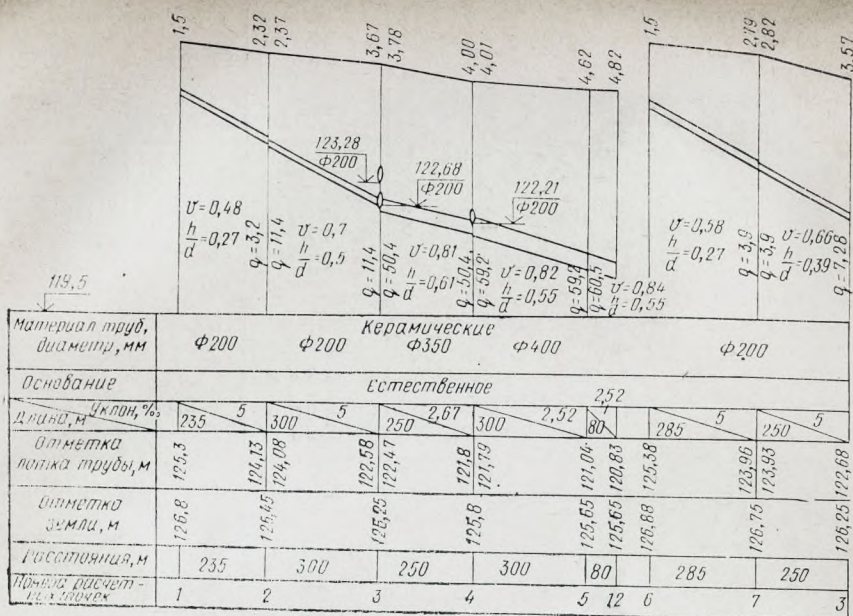 1,5 2,32 2,37 3,67 3,78 4,00 4,01 4,62 4,82 1,5 2,79 2,82 3,57
123,28
Ф200
122,68
Ф200
122,21
Ф200
υ=0,48
h/d=0,27
q=3,2
q=11,4
υ=0,7
h/d=0,5
q=11,4
q=50,4
υ=0,81
h/d=0,61
q=50,4
q=59,2
υ=0,82
h/d=0,55
q=59,2
q=60,5
υ=0,84
h/d=0,55
υ=0,58
h/d=0,27
q=3,9
q=3,9
υ=0,66
h/d=0,39
q=7,28
119,5
Материал труб, диаметр, мм
Керамические
Ф200 Ф200 Ф350 Ф400 Ф200
Основание Естественное
Длина, м Уклон, ‰ 235 5 300 5 250 2,67 300 2,52 80 2,52 285 5 250 5
Отметка лотка трубы, м 125,3 124,13 124,08 122,58 122,47 121,8 121,79 121,04 120,83 125,38 123,96 123,93 122,68
Отметка земли, м 126,8 126,45 126,25 125,8 125,65 125,65 126,88 126,75 126,25
Расстояния, м 235 300 250 300 80 285 250
Номера расчетных точек 1 2 3 4 5 12 6 7 3